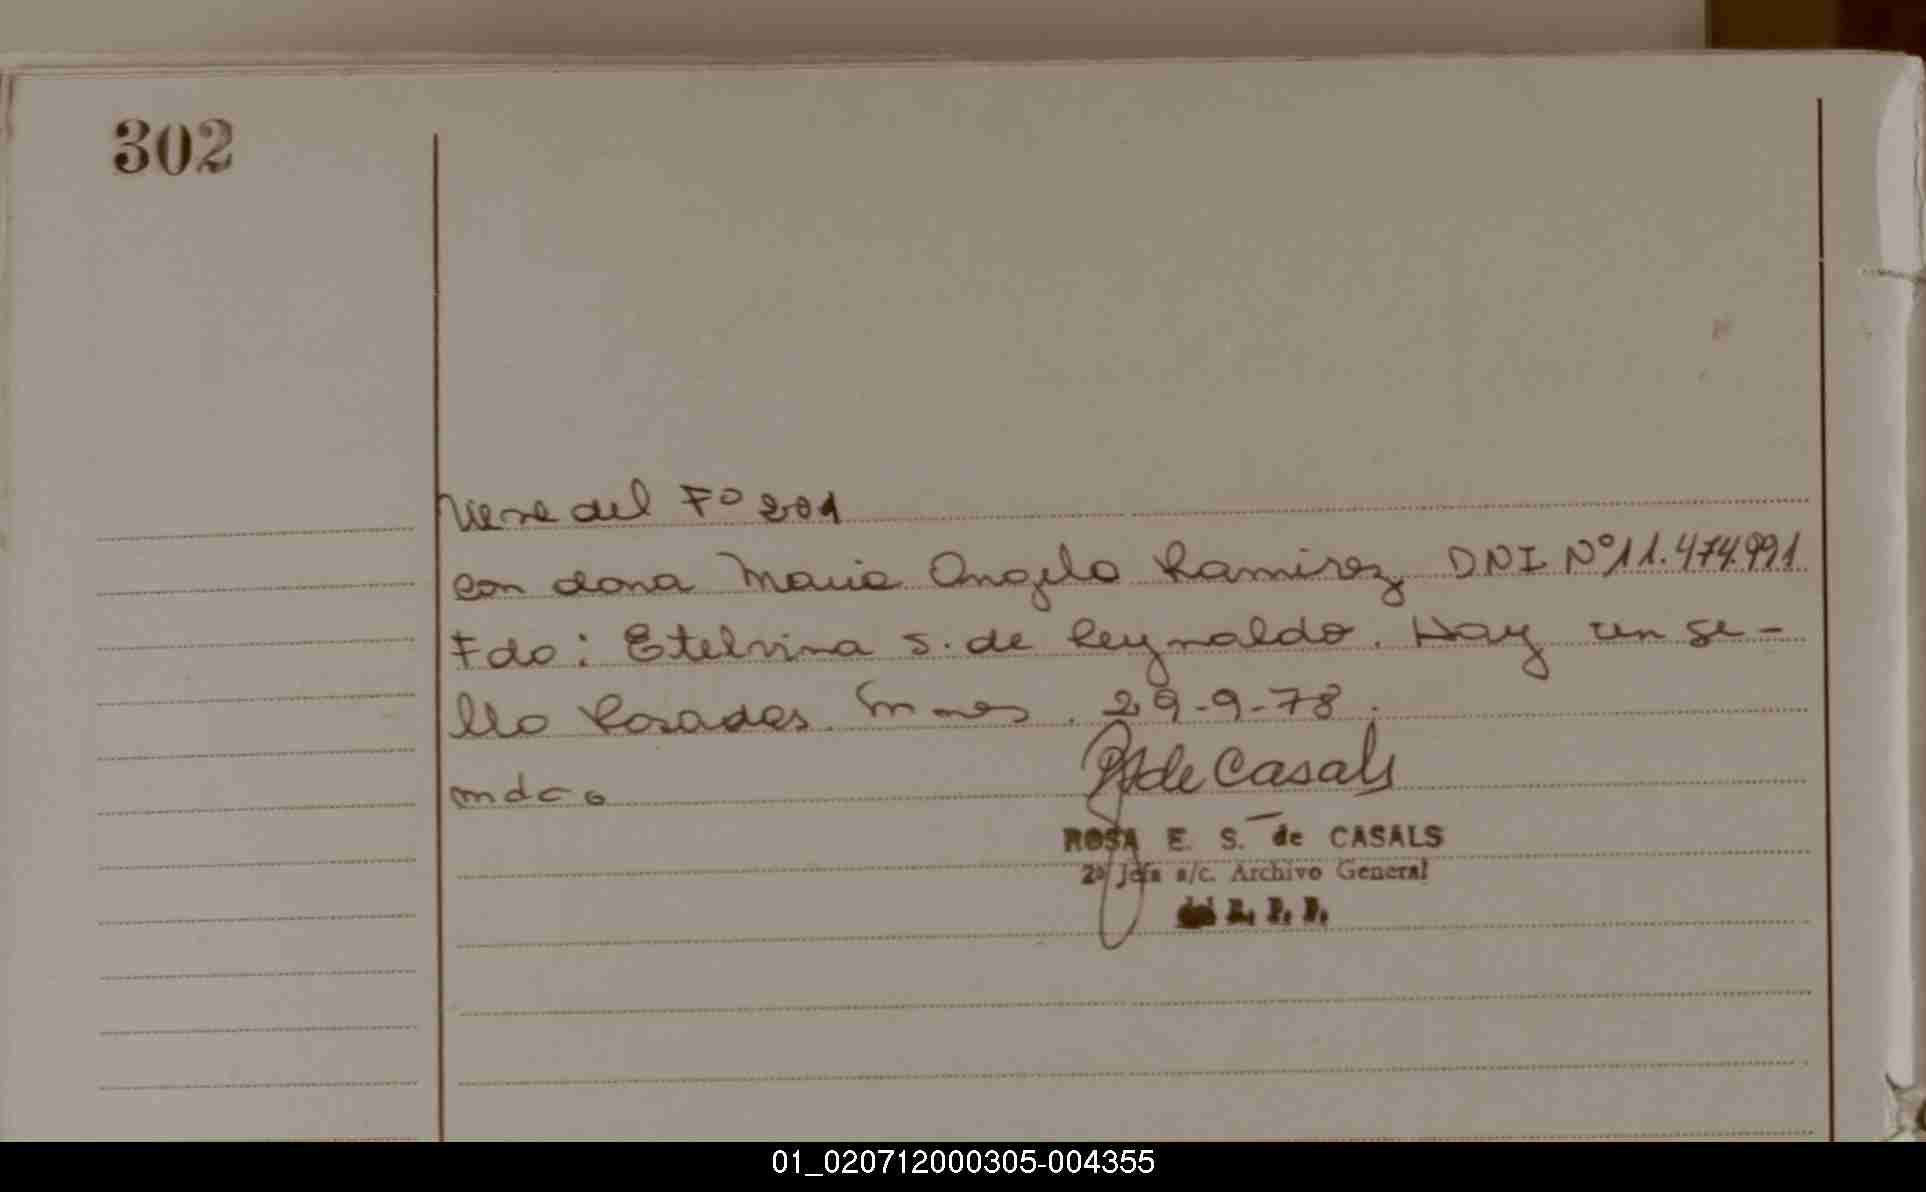 302
Viene del Fº 201
con dona Maria Angela Ramirez DNI Nº 11.474.991
Fdo: Etelvina S. de Reynaldo. Hay un se-
llo Posadas Mnes. 29-9-78.
mdco
de Casals
ROSA E. S. de CASALS
2ª Jefa a/c. Archivo General
del R. P. P.
01_020712000305-004355